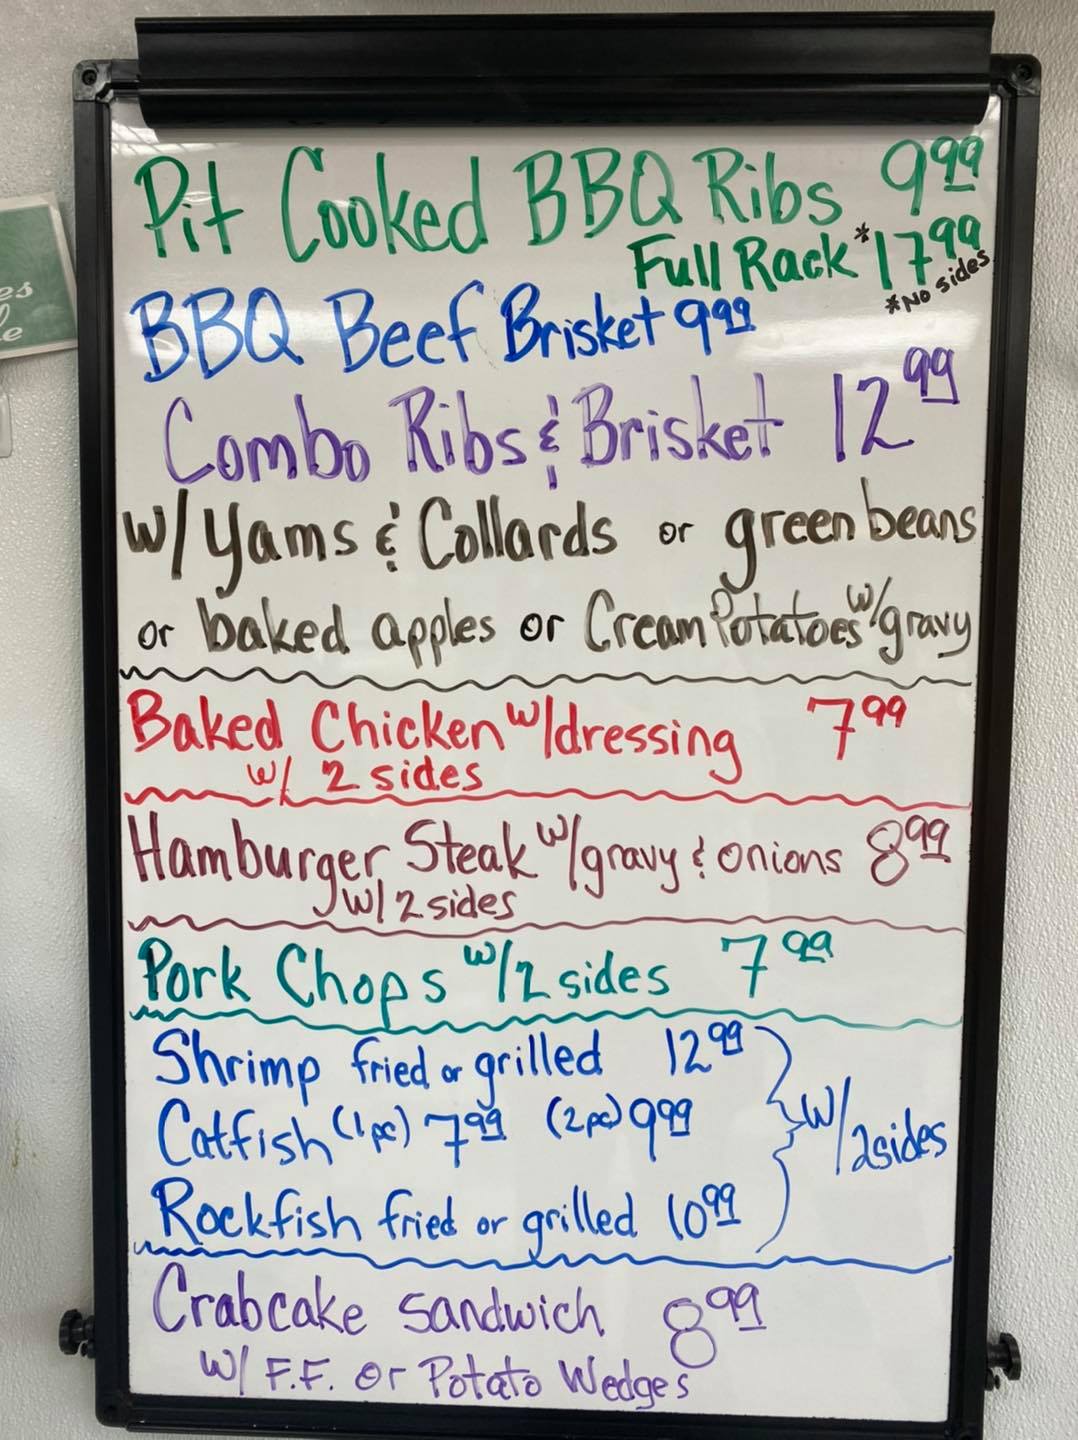 Pit Cooked BBQ Ribs 9.99
Full Rack* 17.99
*No sides
BBQ Beef Brisket 9.99
Combo Ribs & Brisket 12.99
w/ Yams & Collards or green beans
or baked apples or Cream Potatoes w/ gravy
Baked Chicken w/dressing 7.99
w/ 2 sides
Hamburger Steak w/gravy & onions 8.99
w/ 2 sides
Pork Chops w/2 sides 7.99
Shrimp fried or grilled 12.99
Catfish (1pc) 7.99 (2pc) 9.99
w/ 2sides
Rockfish fried or grilled 10.99
Crabcake Sandwich 8.99
w/ F.F. or Potato Wedges